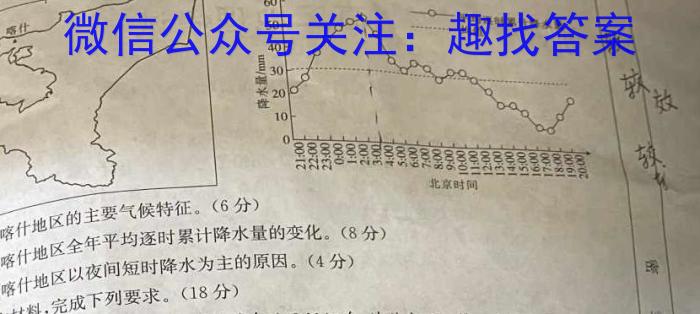 喀什
微信公众号关注：趣找答案
60
40
30
20
10
0
降水量/mm
21:00 22:00 23:00 0:00 1:00 2:00 3:00 4:00 5:00 6:00 7:00 8:00 9:00 10:00 11:00 12:00 13:00 14:00 15:00 16:00 17:00 18:00 19:00 20:00
北京时间
喀什地区的主要气候特征。(6分)
喀什地区全年平均逐时累计降水量的变化。(8分)
喀什地区以夜间短时降水为主的原因。(4分)
材料,完成下列要求。(18分)
密